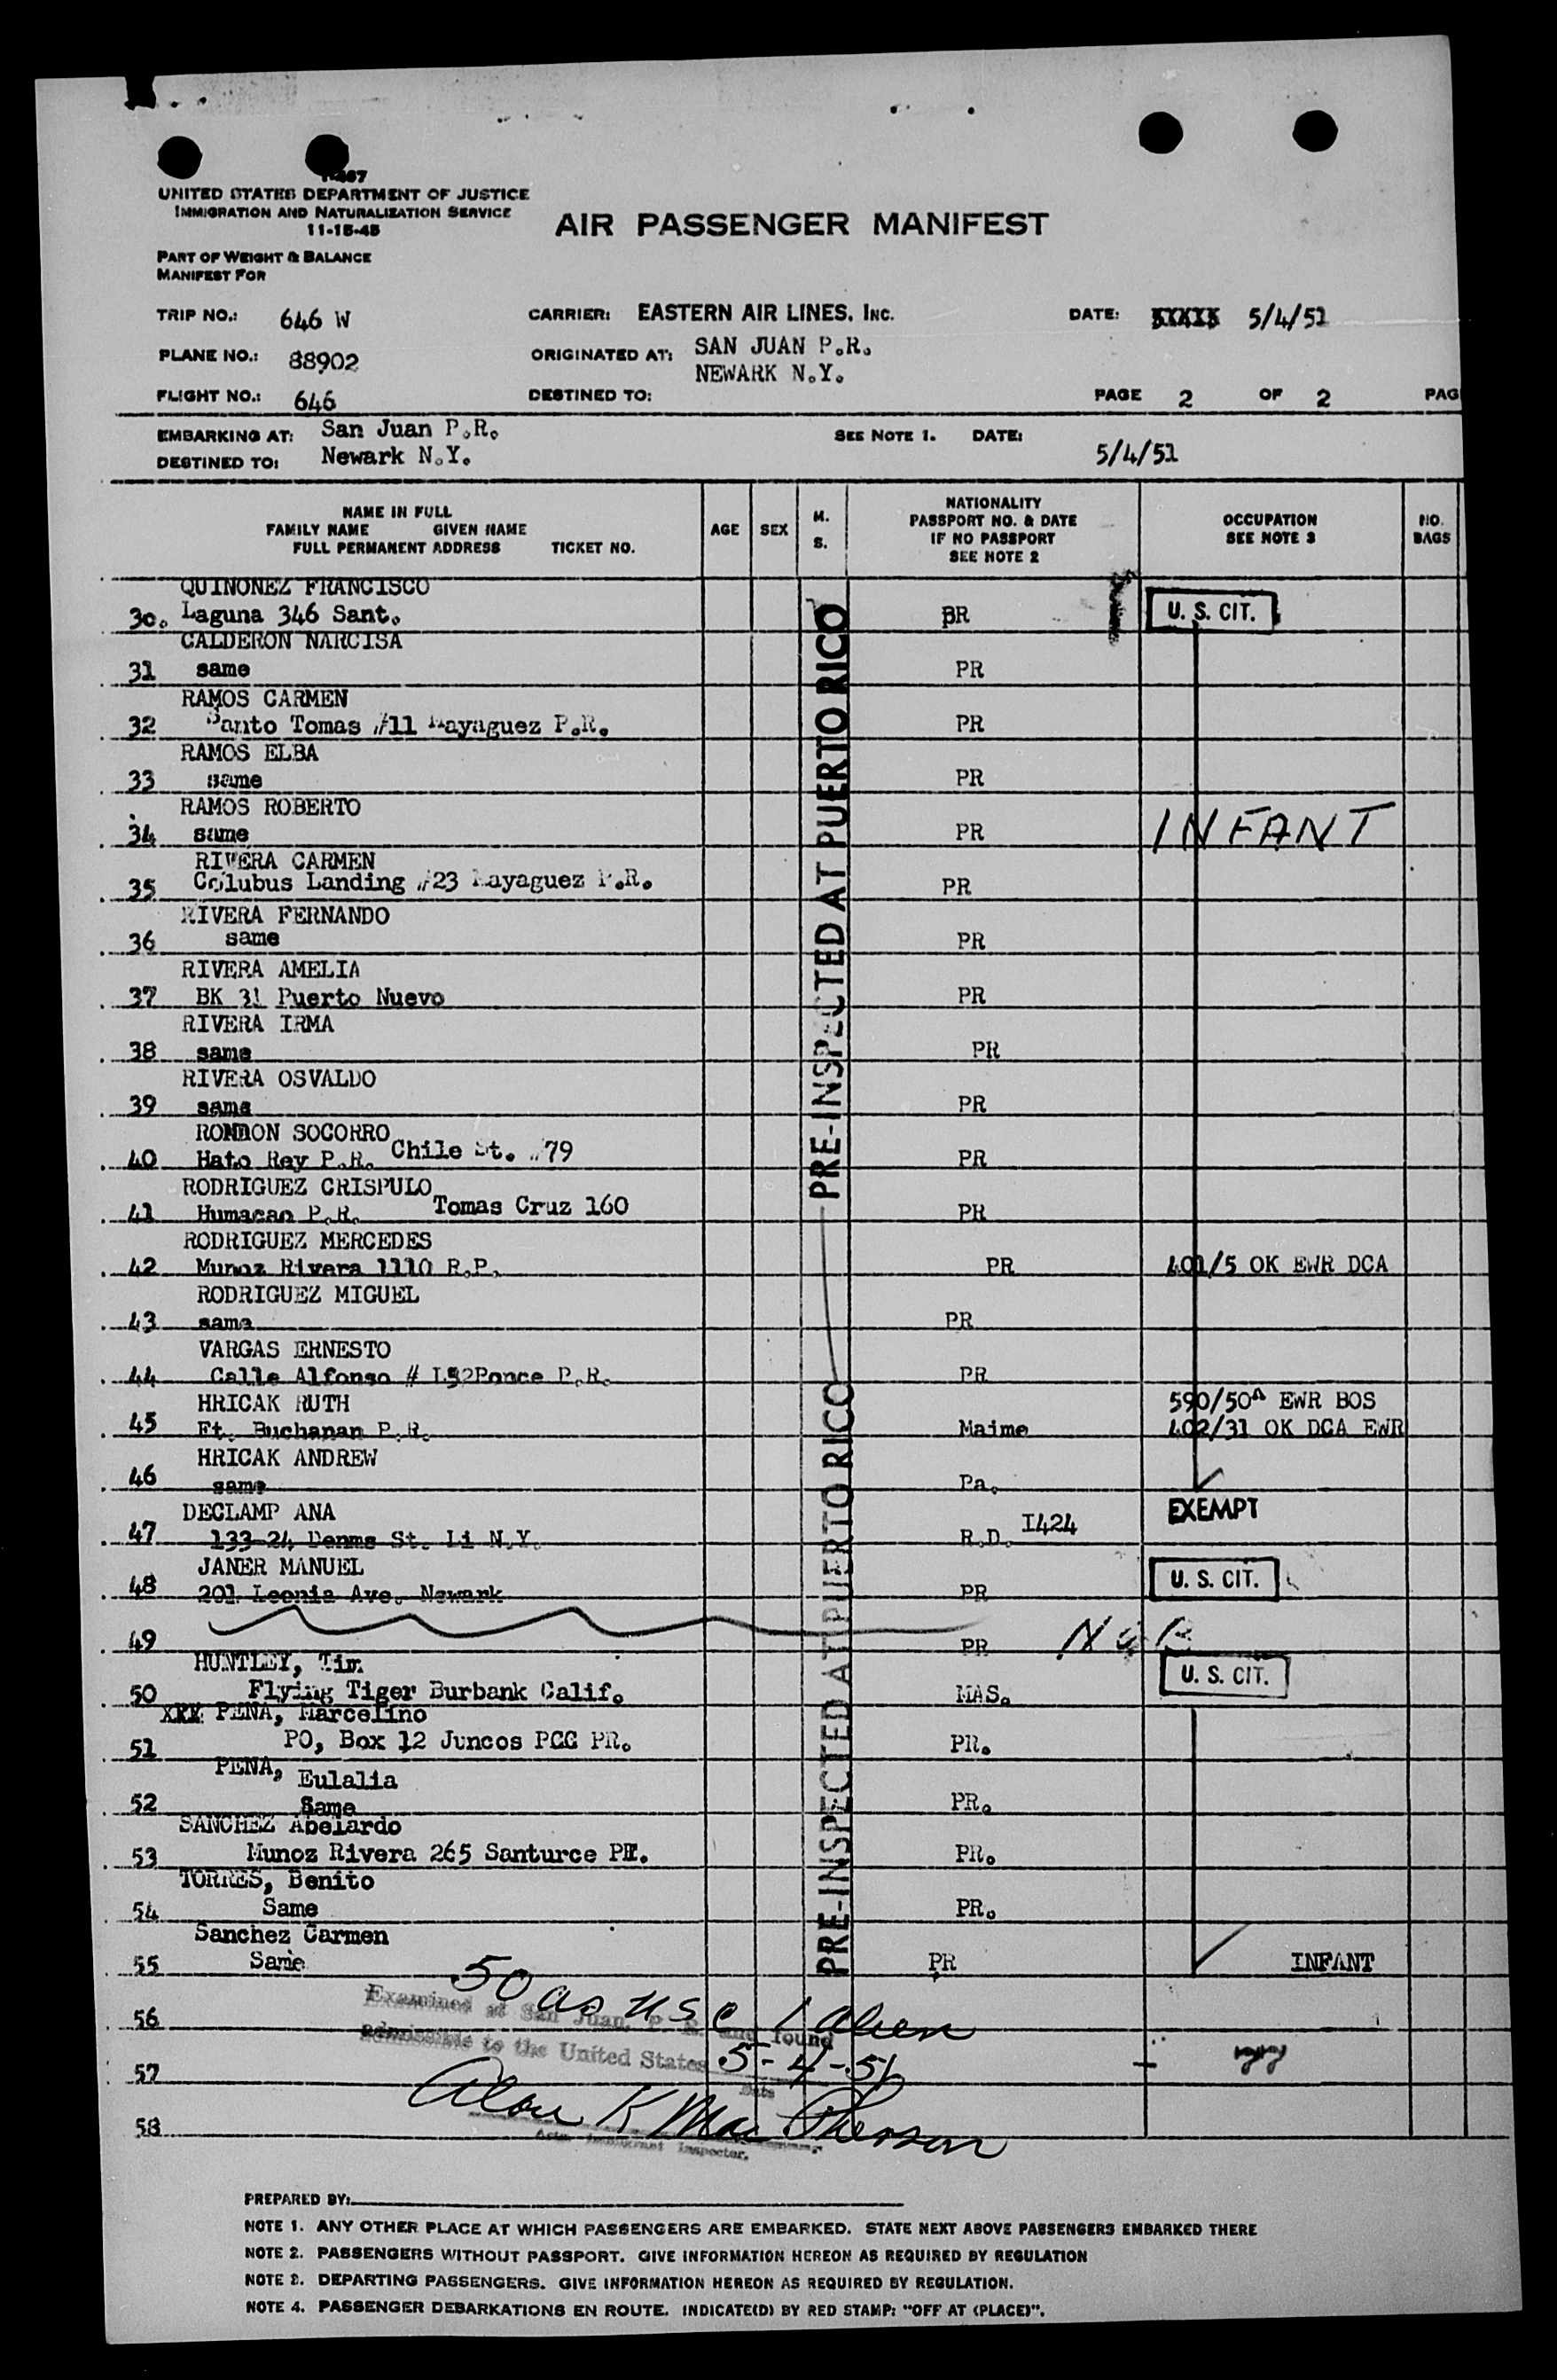 UNITED STATES DEPARTMENT OF JUSTICE
IMMIGRATION AND NATURALIZATION SERVICE
11-15-45
AIR PASSENGER MANIFEST
PART OF WEIGHT & BALANCE
MANIFEST FOR
TRIP NO.: 646 W CARRIER: EASTERN AIR LINES, INC. DATE: 5/4/51
PLANE NO.: 88902 ORIGINATED AT: SAN JUAN P.R.
NEWARK N.Y.
FLIGHT NO.: 646 DESTINED TO: PAGE 2 OF 2 PAG
EMBARKING AT: San Juan P.R. SEE NOTE 1. DATE: 5/4/51
DESTINED TO: Newark N.Y.
NAME IN FULL
FAMILY NAME GIVEN NAME
FULL PERMANENT ADDRESS TICKET NO.
AGE SEX M. S.
NATIONALITY
PASSPORT NO. & DATE
IF NO PASSPORT
SEE NOTE 2
OCCUPATION
SEE NOTE 3
NO. BAGS
QUINONEZ FRANCISCO
30. Laguna 346 Sant. PR U. S. CIT.
CALDERON NARCISA
31 same PR
RAMOS CARMEN
32 Santo Tomas #11 Mayaguez P.R. PR
RAMOS ELBA
33 same PR
RAMOS ROBERTO
34 same PR INFANT
RIVERA CARMEN
35 Colubus Landing #23 Mayaguez P.R. PR
RIVERA FERNANDO
36 same PR
RIVERA AMELIA
37 BK 31 Puerto Nuevo PR
RIVERA IRMA
38 same PR
RIVERA OSVALDO
39 same PR
RONDON SOCORRO
40 Hato Rey P.R. Chile St. #79 PR
RODRIGUEZ CRISPULO
41 Humacao P.R. Tomas Cruz 160 PR
RODRIGUEZ MERCEDES
42 Munoz Rivera 1110 R.P. PR 401/5 OK EWR DCA
RODRIGUEZ MIGUEL
43 same PR
VARGAS ERNESTO
44 Calle Alfonso # Ponce P.R. PR
HRICAK RUTH 590/50A EWR BOS
45 Ft. Buchanan P.R. Maime 402/31 OK DCA EWR
HRICAK ANDREW
46 same Pa.
DECLAMP ANA EXEMPT
47 133-24 Denms St. Li N.Y. R.D. I424
JANER MANUEL
48 201 Leonia Ave. Newark PR U. S. CIT.
49 PR
HUNTLEY, Tim U. S. CIT.
50 Flying Tiger Burbank Calif. MAS.
XXX PENA, Marcelino
51 PO, Box 12 Juncos PR. PR.
PENA, Eulalia
52 Same PR.
SANCHEZ Abelardo
53 Munoz Rivera 265 Santurce PR. PR.
TORRES, Benito
54 Same PR.
Sanchez Carmen
55 Same PR INFANT
PRE-INSPECTED AT PUERTO RICO
PRE-INSPECTED AT PUERTO RICO
50 as USC 1 alien
Examined at San Juan, P. R. and found
56
admissible to the United States 5-4-51
Date
57
Alan K MacPherson
58
Immigrant Inspector.
PREPARED BY:
NOTE 1. ANY OTHER PLACE AT WHICH PASSENGERS ARE EMBARKED. STATE NEXT ABOVE PASSENGERS EMBARKED THERE
NOTE 2. PASSENGERS WITHOUT PASSPORT. GIVE INFORMATION HEREON AS REQUIRED BY REGULATION
NOTE 3. DEPARTING PASSENGERS. GIVE INFORMATION HEREON AS REQUIRED BY REGULATION.
NOTE 4. PASSENGER DEBARKATIONS EN ROUTE. INDICATE(D) BY RED STAMP: "OFF AT (PLACE)".